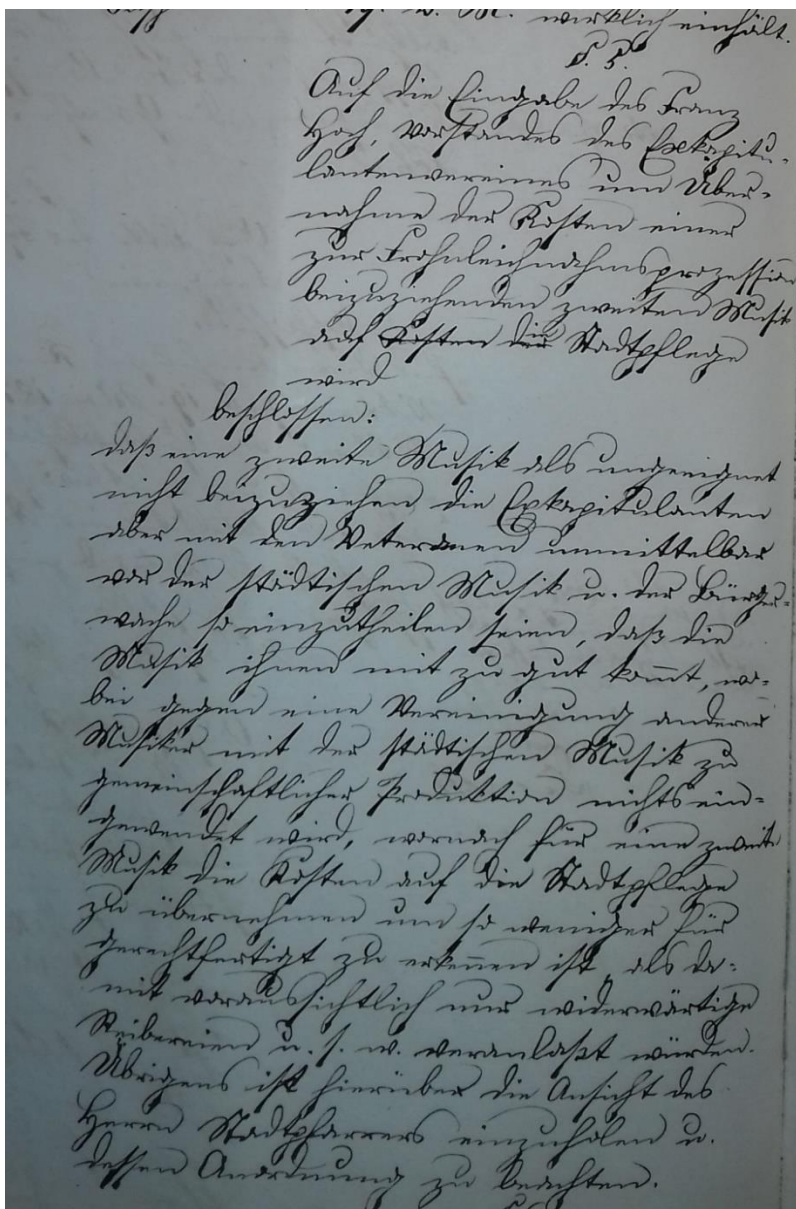 19. d. M. wirklich einhält.
§. 5.
Auf die Eingabe des Franz
Hoch, Vorstandes des Exkapitu-
lantenvereines um Über-
nahme der Kosten einer
zur Frohnleichnahmsprozession
beizuziehenden zweiten Musik
auf Kosten die Stadtpflege
wird
beschlossen:
daß eine zweite Musik als ungeeignet
nicht beizuziehen die Exkapitulanten
aber mit den Veteranen unmittelbar
vor der städtischen Musik u. der Bürger-
wache so einzutheilen seien, daß die
Musik ihnen mit zu gut kommt, wo-
bei gegen eine Vereinigung anderer
Musiker mit der städtischen Musik zu
gemeinschaftlicher Produktion nichts ein-
gewendet wird, wornach für eine zweite
Musik die Kosten auf die Stadtpflege
zu übernehmen um so weniger für
gerechtfertigt zu erkennen ist, als da-
mit voraussichtlich nur widerwärtige
Reibereien u. s. w. veranlaßt würden.
Übrigens ist hierüber die Ansicht des
Herrn Stadtpfarrers einzuholen u.
dessen Anordnung zu beachten.